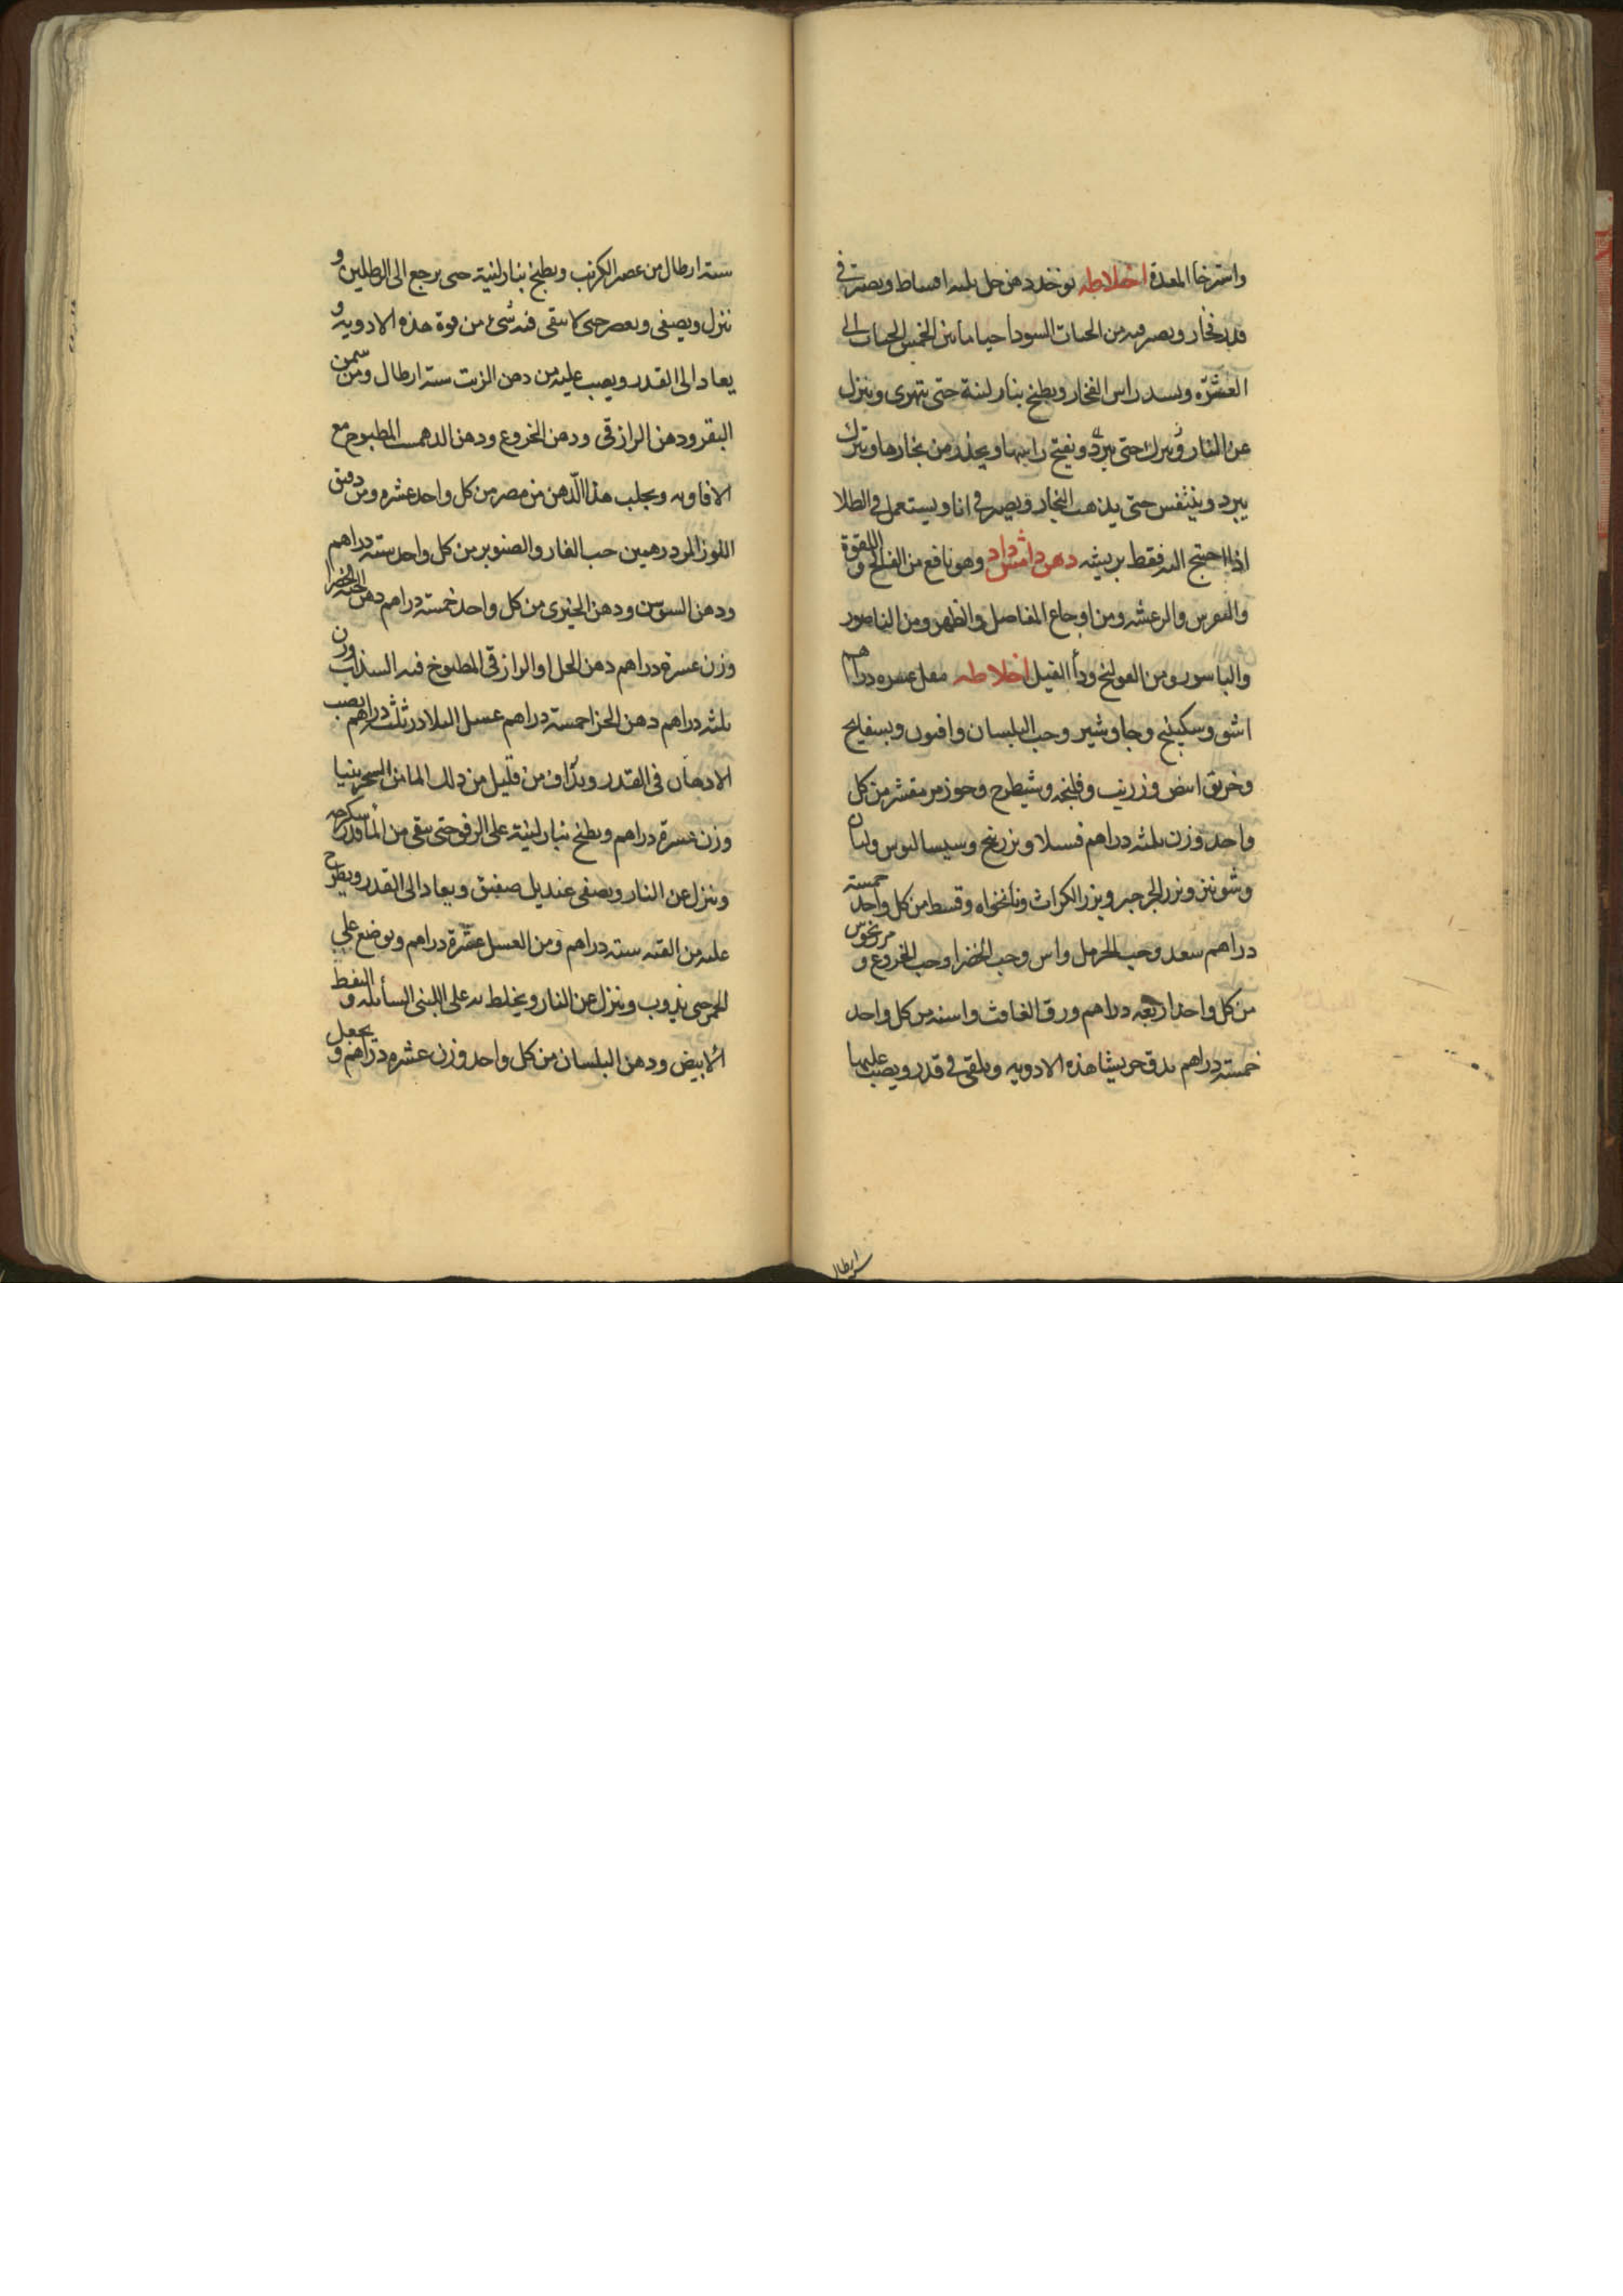 واسترخا المعدة اخلاطه يوخذ دهن حل ثلثه اقساط ويصير في
قدر فخار ويصير فيه من الحيات السودا احيا ما بين الخمس الحيات الى
العشرة ويسد راس الفخار ويطبخ بنار لينة حتى يتهرى وينزل
عن النار ويترك حتى يبرد ويفتح راسها ويحذر من بخارها ويترك
يبرد ويتنفس حتى يذهب البخار ويصير في انا ويستعمل في الطلا
اذا احتيج اليه فقط بريشه دهن وهو نافع من الفالج واللقوة
والنقرس والرعشه ومن اوجاع المفاصل والظهر ومن الناصور
والباسور ومن القولنج ودأ الفيل اخلاطه مقل عشره دراهم
اشق وسكبينج وجاوشير وحب البلسان وافيون وبسفايج
وخربق ابيض وزرنب وفلنجه وشيطرج وجوز مر مقشر من كل
واحد وزن ثلثه دراهم وسيساليوس ولبان
وشونيز وبزر الجرجير وبزر الكراث ونانخواه وقسط من كل واحد خمسة
دراهم سعد وحب الحرمل واس وحب الخضرا وحب الخروع و
من كل واحد اربعه دراهم ورق الغافث واسنه من كل واحد
خمسة دراهم يدق جريشا هذه الادويه ويلقى في قدر ويصب عليها
ستة ارطال
سته ارطال من عصير الكرنب ويطبخ بنار لينة حتى يرجع الى الرطلين و
ينزل ويصفى ويعصر حتى لا يبقى فيه شيء من قوة هذه الادويه و
يعاد الى القدر ويصب عليه من دهن الزيت ستة ارطال ومن سمن
البقر ودهن الرازقى ودهن الخروع ودهن الدهمست المطبوخ مع
الافاويه ويجلب هذا الدهن من مصر من كل واحد عشره ومن دقيق
اللوز المر درهمين حب الغار والصنوبر من كل واحد ستة دراهم
ودهن السوسن ودهن الخيرى من كل واحد خمسة دراهم دهن الحبة الخضرا
وزن عشرة دراهم دهن الحل او الرازقى المطبوخ فيه السذاب وزن
ثلثه دراهم دهن خمسة دراهم عسل البلادر ثلث دراهم يصب
الادهان فى القدر ويداف من قليل من ذلك الما من السجزينيا
وزن عشرة دراهم ويطبخ بنار لينة على الرفق حتى يبقى من الما قدر سكرجه
وينزل عن النار ويصفى بمنديل صفيق ويعاد الى القدر ويطرح
عليه من القنه ستة دراهم ومن العسل عشرة دراهم ويوضع على
الجمر حتى يذوب وينزل عن النار ويخلط به على اللبنى السائله والنفط
الابيض ودهن البلسان من كل واحد وزن عشره دراهم ويجعل